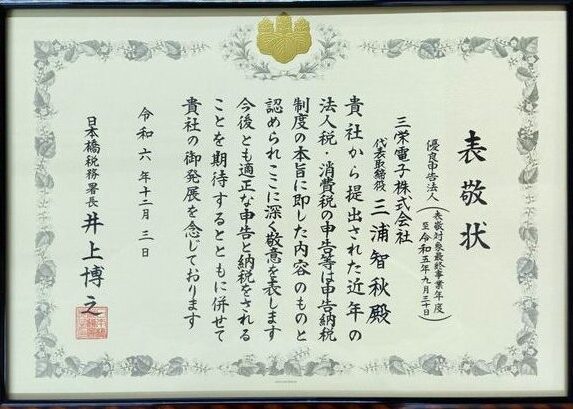 表敬状
優良申告法人
（表敬対象最終事業年度
至令和五年九月三十日）
三栄電子株式会社
代表取締役 三浦智秋殿
貴社から提出された近年の
法人税・消費税の申告等は申告納税
制度の本旨に即した内容のものと
認められここに深く敬意を表します
今後とも適正な申告と納税をされる
ことを期待するとともに併せて
貴社の御発展を念じております
令和六年十二月三日
日本橋税務署長 井上博之